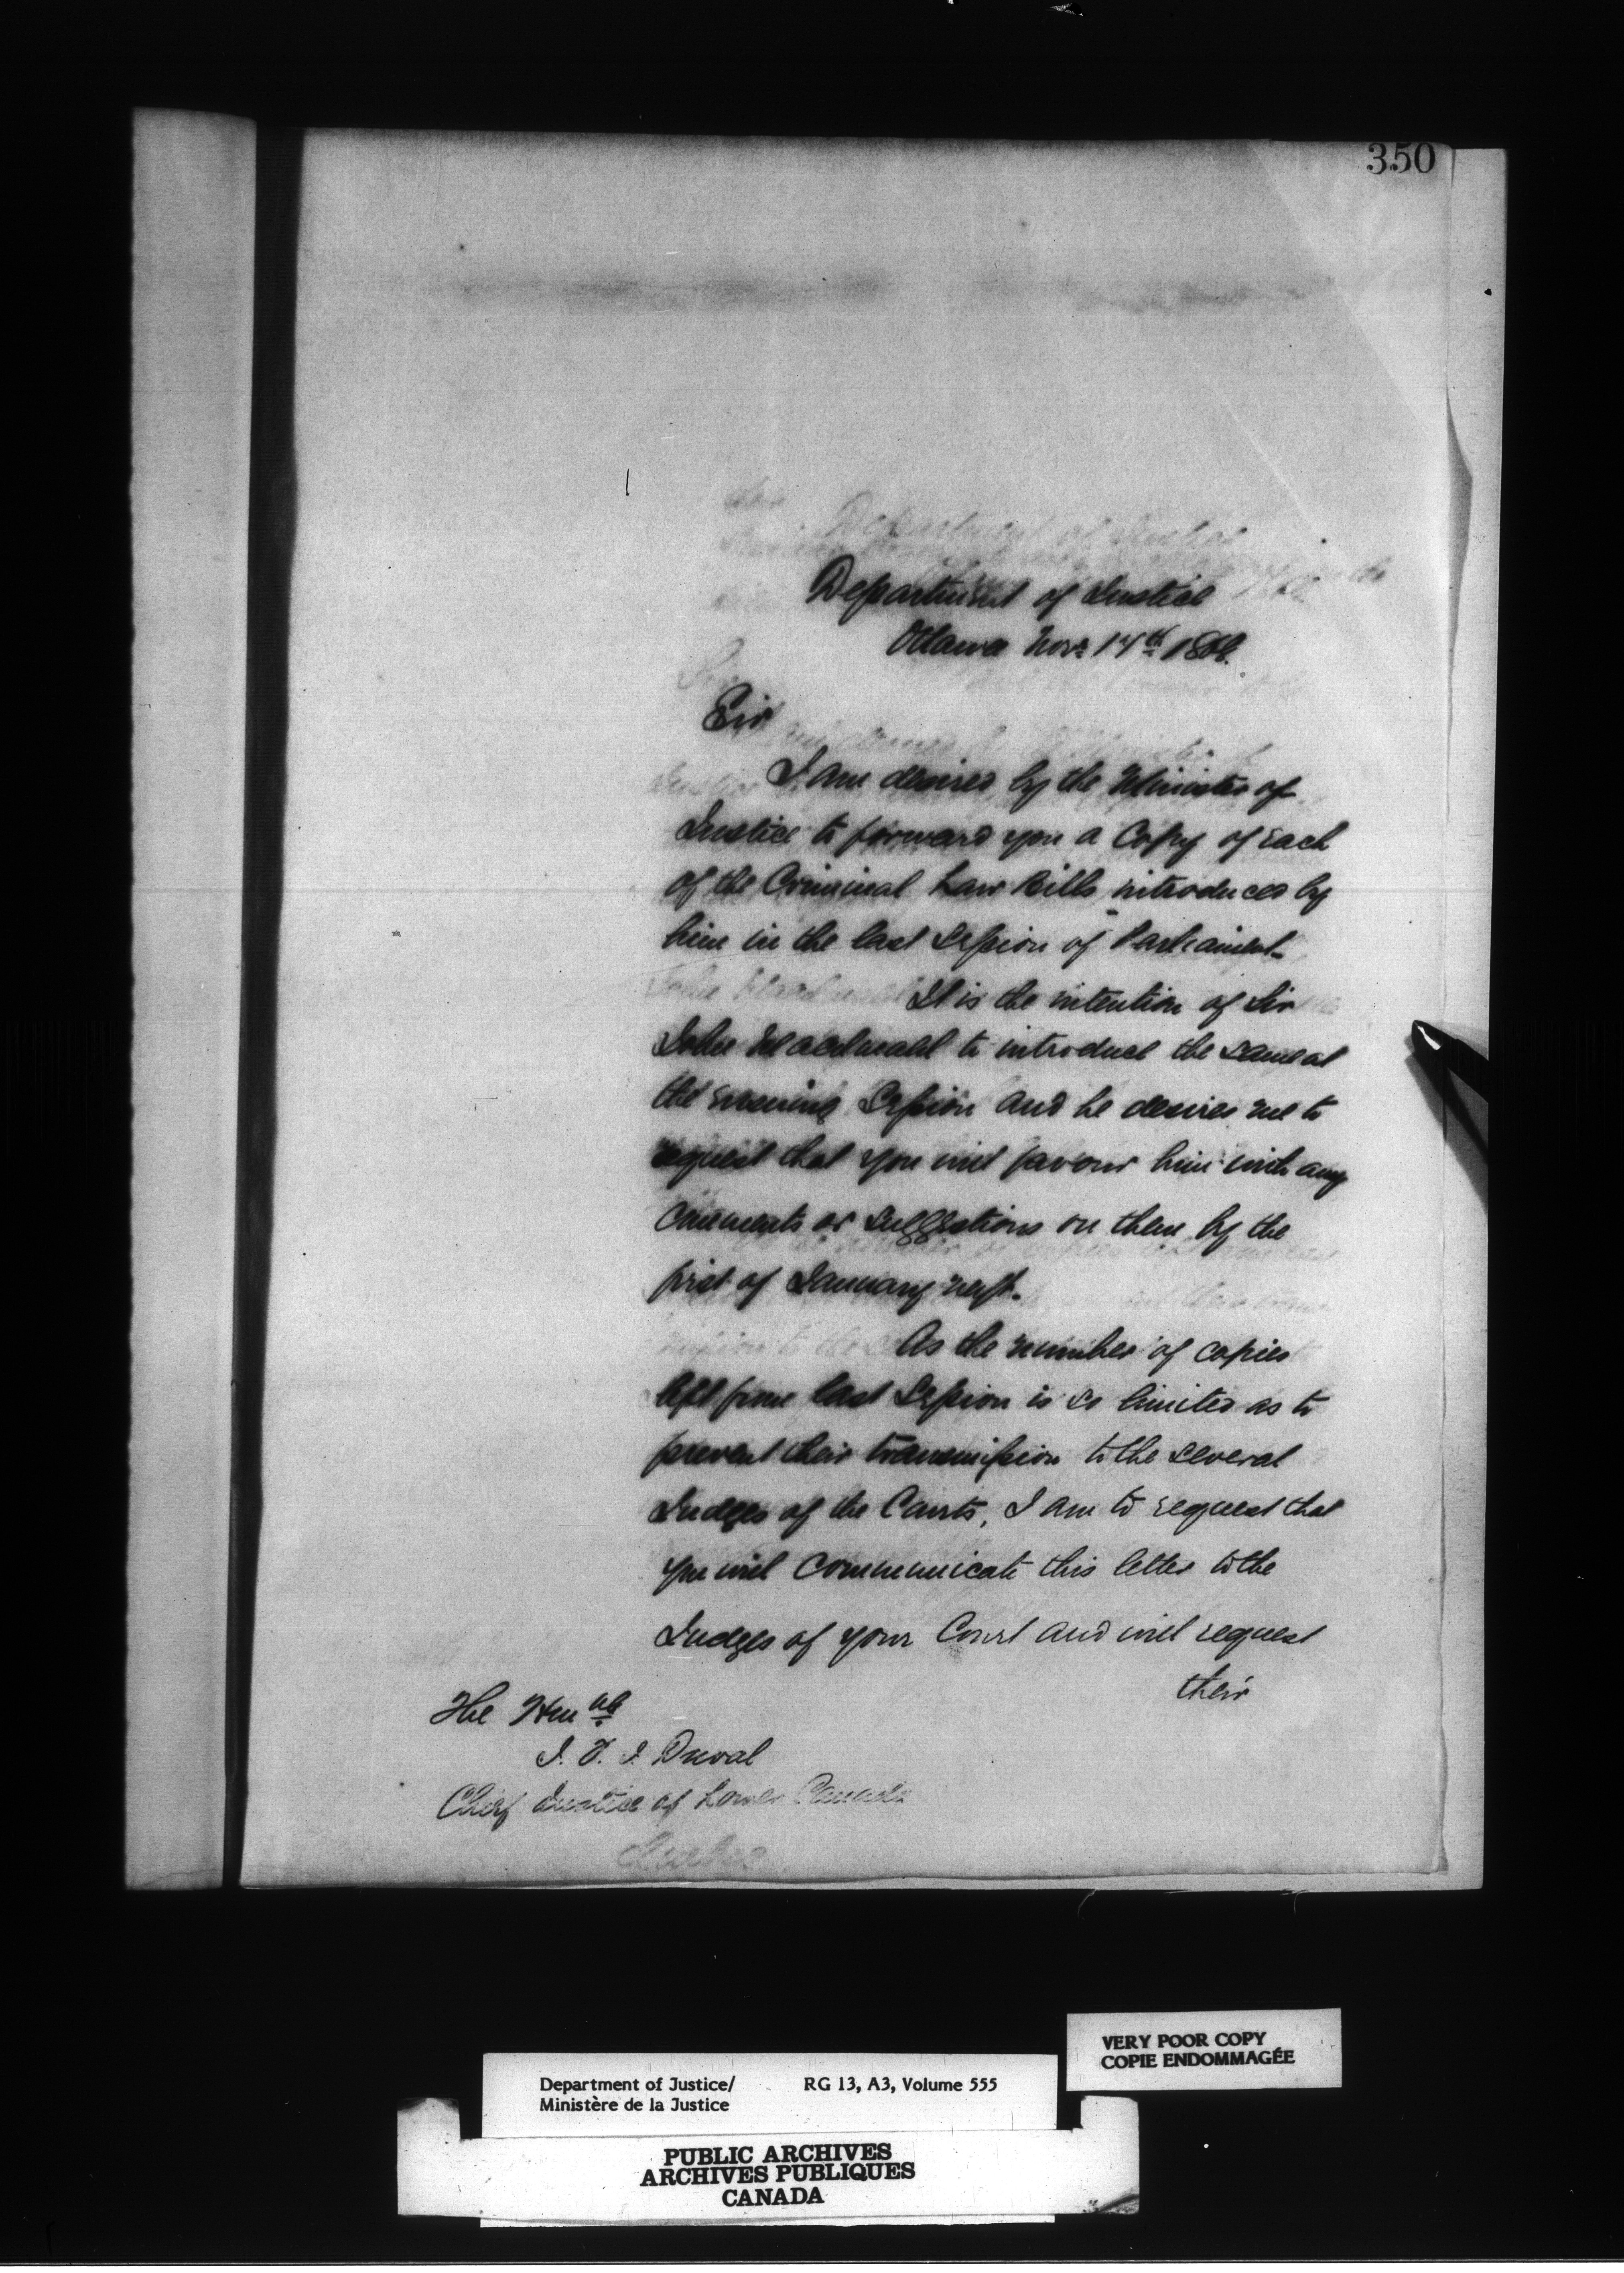 350
Department of Justice
Ottawa Novr 14th 1868.
Sir
I am desired by the Minister of
Justice to forward you a Copy of each
of the Criminal Law Bills introduced by
him in the last Session of Parliament.
It is the intention of Sir
John Macdonald to introduce the same at
the ensuing Session and he desires me to
request that you will favour him with any
comments or suggestions on them by the
first of January next.
As the number of copies
left from last Session is so limited as to
prevent their transmission to the several
Judges of the Courts, I am to request that
you will communicate this letter to the
Judges of your Court and will request
their
The Honble
J. F. J. Duval
Chief Justice of Lower Canada
Quebec
VERY POOR COPY
COPIE ENDOMMAGÉE
Department of Justice/ RG 13, A3, Volume 555
Ministère de la Justice
PUBLIC ARCHIVES
ARCHIVES PUBLIQUES
CANADA